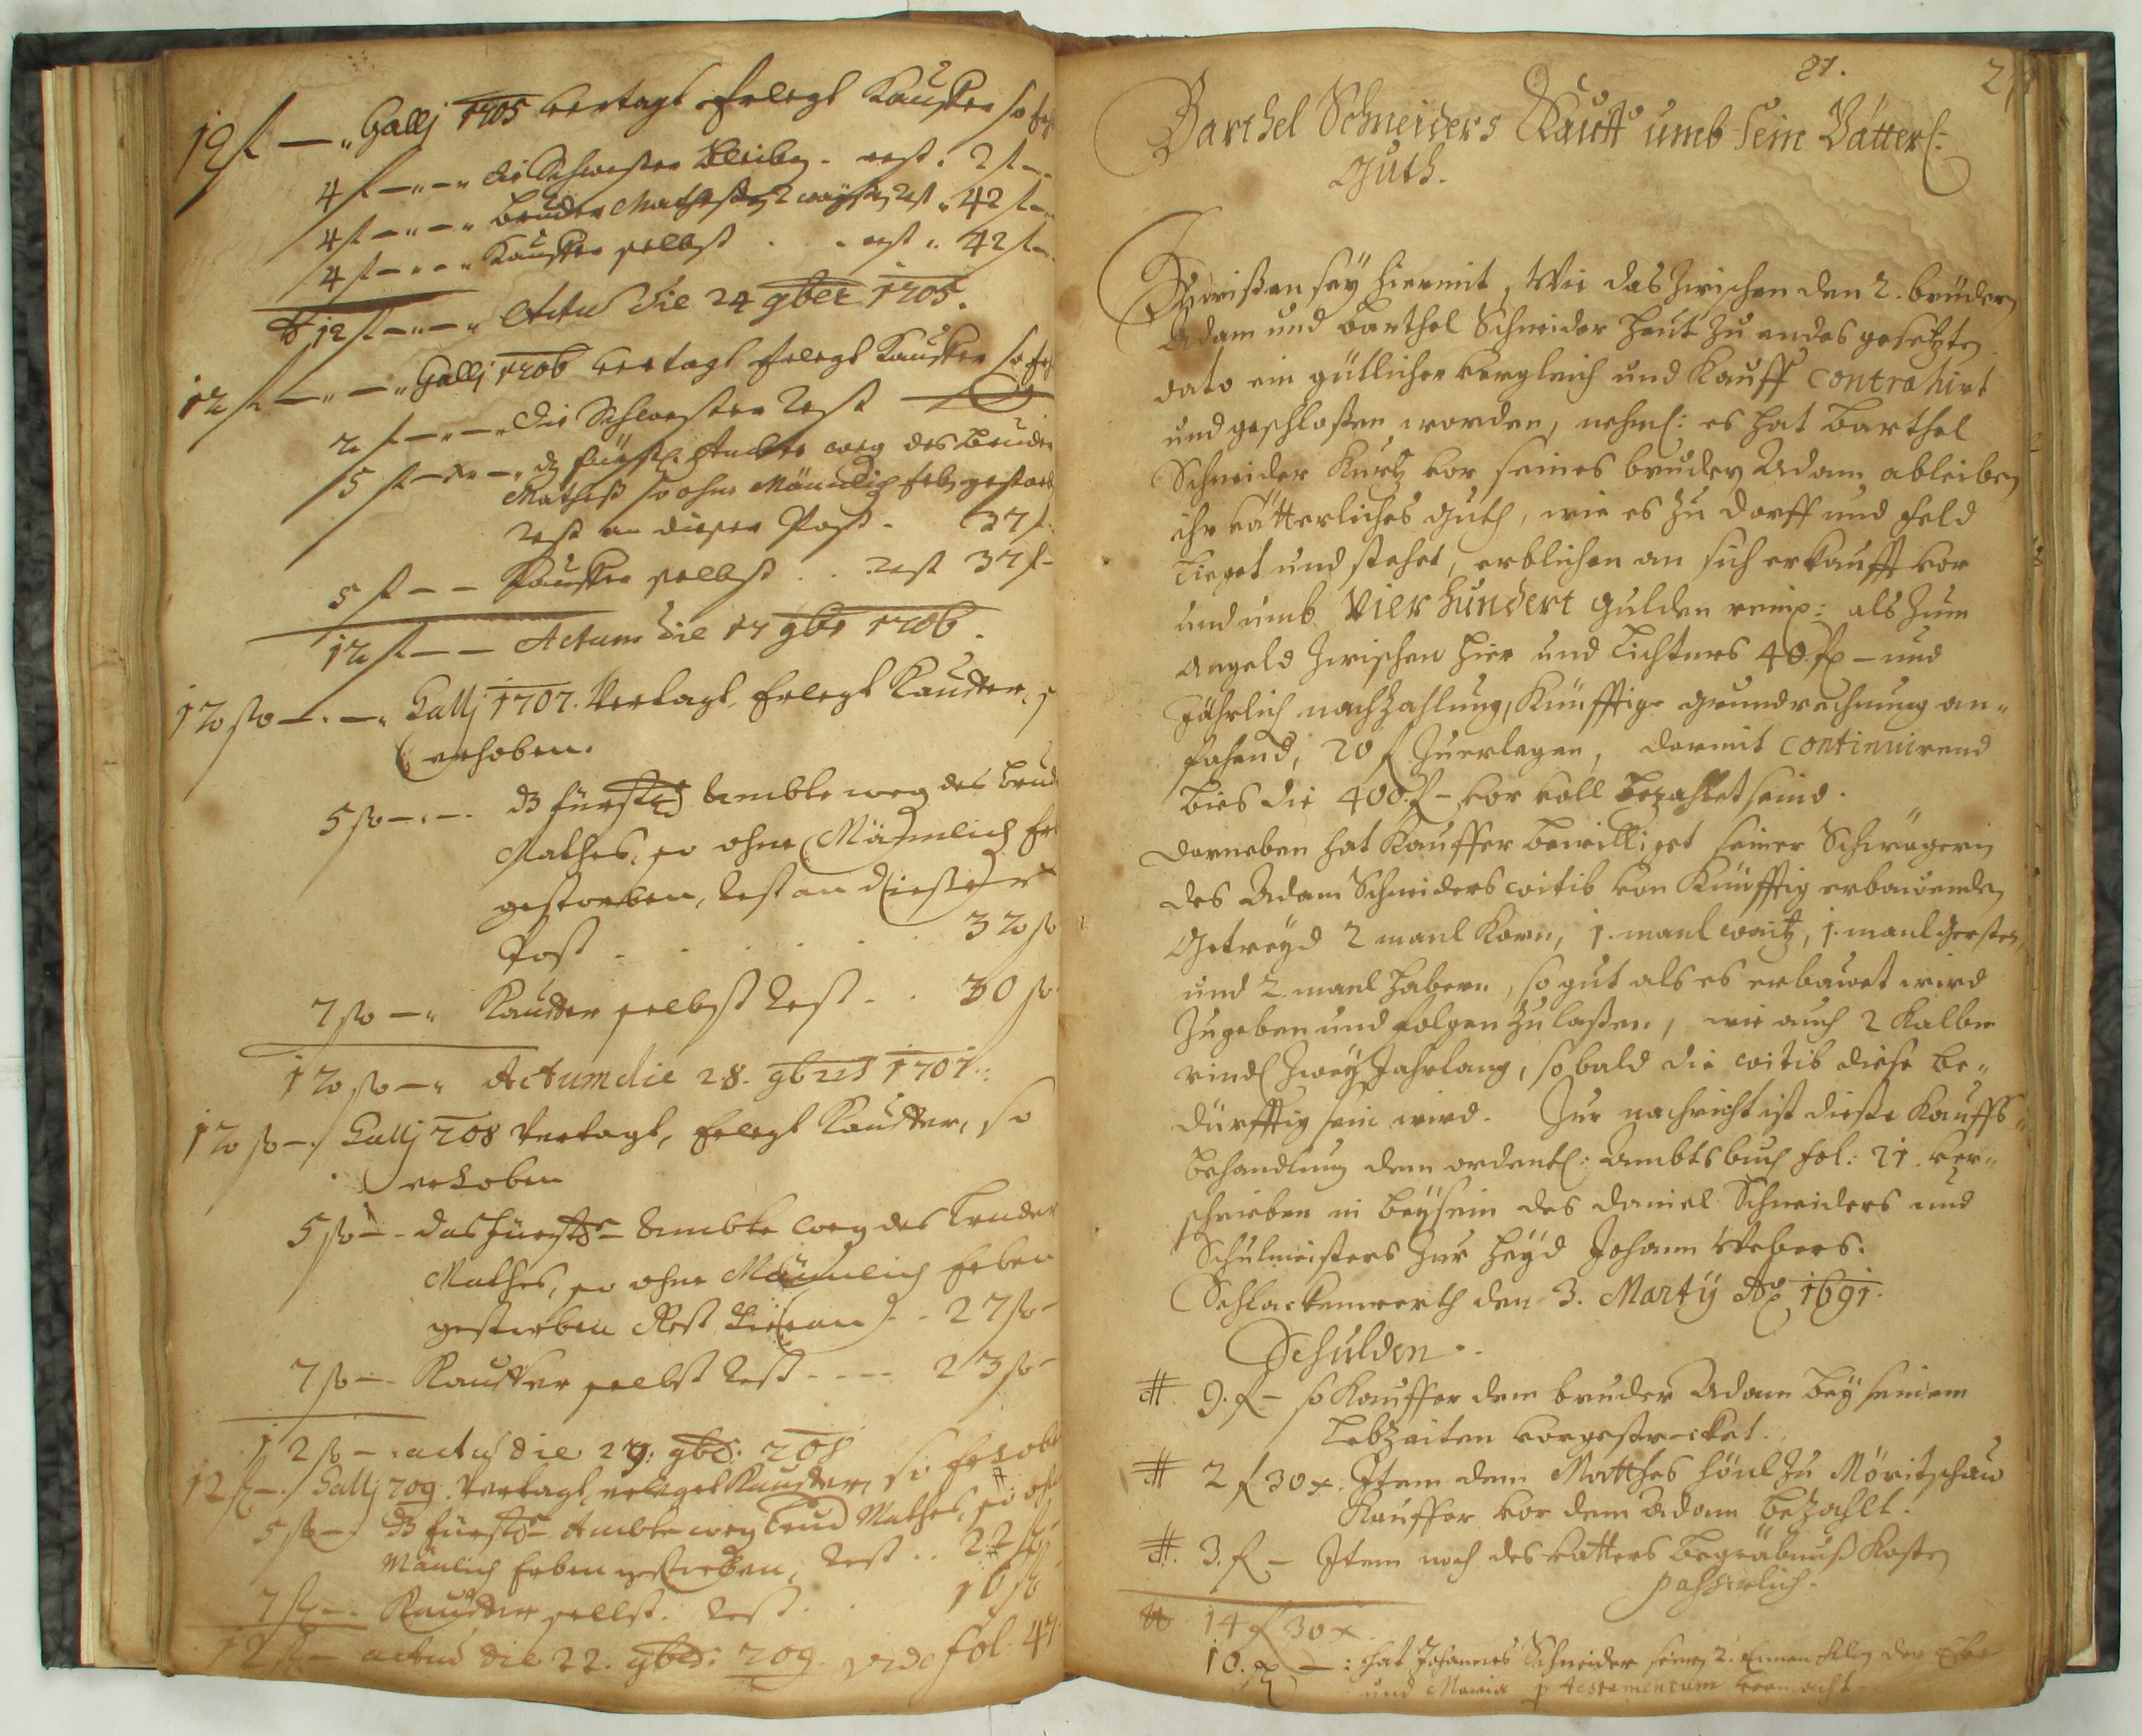 12 f — „ Gallj 1705 vertagt erlegt Kauffer so
4 f —„—„ die Schwester bleibn . rest . 2 f —
4 f —„—„ bruder Matheßen 2 waysen rest „ 42 f —
4 f —„—„ Kauffer selbst . . rest „ 42 f —
12 f —„—„ Actu die 24 9ber 1705.
12 f —„—„ Gallj 1706 vertagt erlegt Kauffer so
2 f —„—„ die Schwester Rest
5 f — — „ dz fürstl: Ambte weg des bruder
Matheß so ohne Männlich erbn gestorbn
rest an dieser Post . 37 f
5 f — — Kauffer selbst . . rest 37 f —
12 f — — Actum die 17 9br 1706.
12 fl —.—„ Gallj 1707. Vertagt, Erlegt Kauffer, s
erhoben.
5 fl —.—. dz fürstl Ambte weg des brud
Mathes, so ohne Männlich Er
gestorben, Rest an dießer
Post . . . . . 32 fl
7 fl —„ Kauffer selbst Rest . . 30 fl
12 fl —„ Actum die 28. 9bris 1707.
12 fl —./ Gallj 708 Vertagt, Erlegt Kauffer, so
erhoben
5 fl — . das fürstl Ambte weg des bruder
Mathes, so ohne Männlich Erben
gestorben Rest hieran . . 27 fl —
7 fl — . Kauffer selbst Rest . . . . 23 fl —
12 fl — . actu die 29. 9bris: 708
12 fl —./ Gallj 709. Vertagt, erleget Kauffer, so erhobe
5 fl —. dz fürstl Ambte weg brud Mathes, so ohn
Mänlich Erben gestorben, Rest . . 22 fl
7 fl —. Kauffer selbst. Rest . . 16 fl
12 fl — actu die 22. 9bris: 709. vide fol. 47
21.
Barthel Schneiders Kauff umb sein Vätterl:
Guth.
Zuwißen sey hiermit, Wie das zwischen den 2. brüdern
Adam und Barthel Schneider heut zu endes gesetzten
dato ein gütlicher vergleich und Kauff contrahirt
und geschloßen worden, nehml: es hat Barthel
Schneider kurtz vor seines bruders Adam ableiben
ihr vätterliches guth, wie es zu dorff und feld
lieget und stehet, erblichen an sich erkaufft vor
und umb Vier hundert gulden reinp: als zum
angeld zwischen hier und Lichtmes 40. f — und
Jährlich nachzahlung, künfftige grundrechnung an„
fahend, 20 f zuerlegen, darmit continuirend
bies die 400. f — vor voll bezahlet seind.
darneben hat Kauffer bewilliget seiner Schwägerin
des Adam Schneiders witib von künfftig erbauenden
Getreyd 2 maul Korn, 1. maul waitz, 1. maul gersten,
und 2 maul habern, so gut als es erbauet wird
zugeben und folgen zulaßen, wie auch 2 Kalben
rindl zwey Jahrlang, so bald die witib diese be„
dürfftig sein wird. Zur nachricht ist dieße Kauffs„
behandlung dem ordentl: Ambtsbuch fol: 21. ver„
schrieben in beysein des Daniel Schneiders und
Schulmeisters zur Heyd Johann Webers.
Schlackenwerth den 3. Martÿ Ao 1691.
Schulden.
# 9. f — so Kauffer dem bruder Adam bey seinem
Lebzeiten vorgestrecket.
# 2 f 30 x. Item dem Matthes Hönl zu Möritschau
Kauffer vor dem Adam bezahlt.
#. 3. f — Item noch des vatters begräbnuß Kosten
14 f 30 x
10. f — : hat Johannes Schneider seiner 2.
und Maria p testamentum vermacht